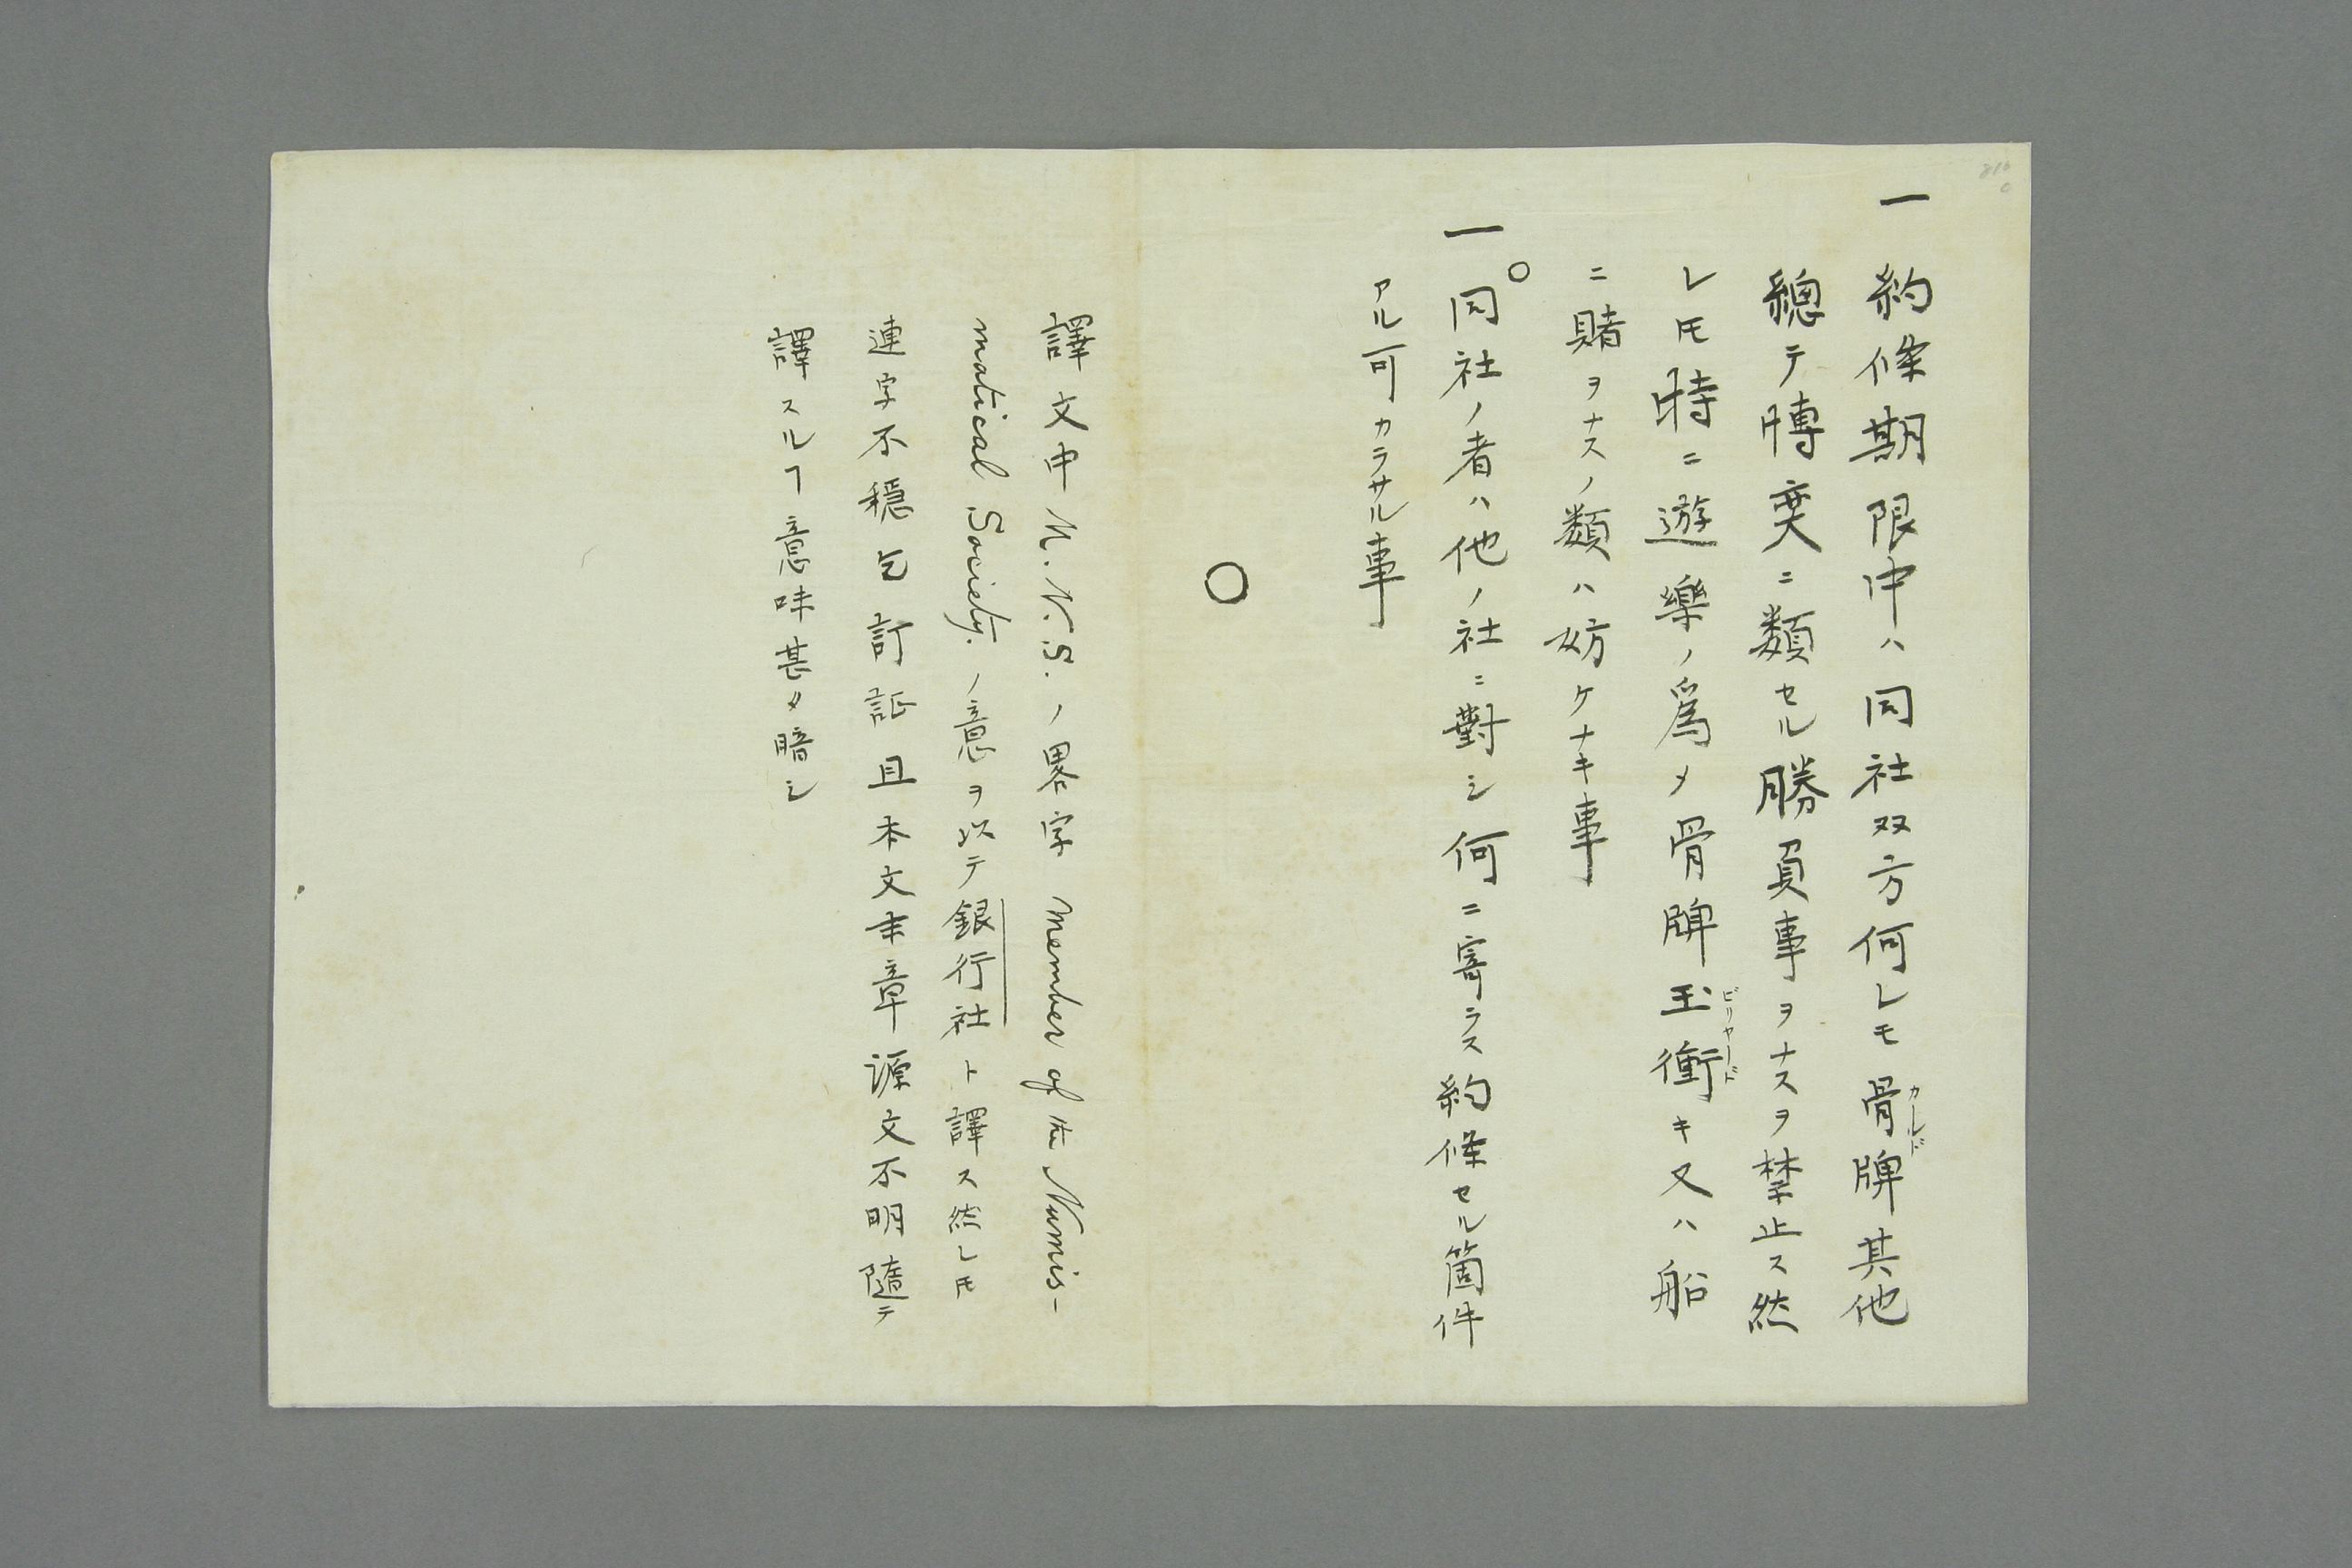 一 約條期限中ハ同社双方何レモ骨牌其他
カールド
總テ博奕ニ類セル勝負事ヲナスヲ禁止ス然
レ𪜈時ニ遊樂ノ爲メ骨牌玉衝キ又ハ船
ビリヤード
ニ賭ヲナスノ類ハ妨ケナキ事
一 ○同社ノ者ハ他ノ社ニ對シ何ニ寄ラス約條セル箇件
アル可カラサル事
○
譯文中M.N.S.ノ畧字 Member of the Numis-
matical Society.ノ意ヲ以テ銀行社ト譯ス然レ𪜈
連字不穩乞訂証且本文末章源文不明隨テ
譯スルヿ意味甚タ暗シ